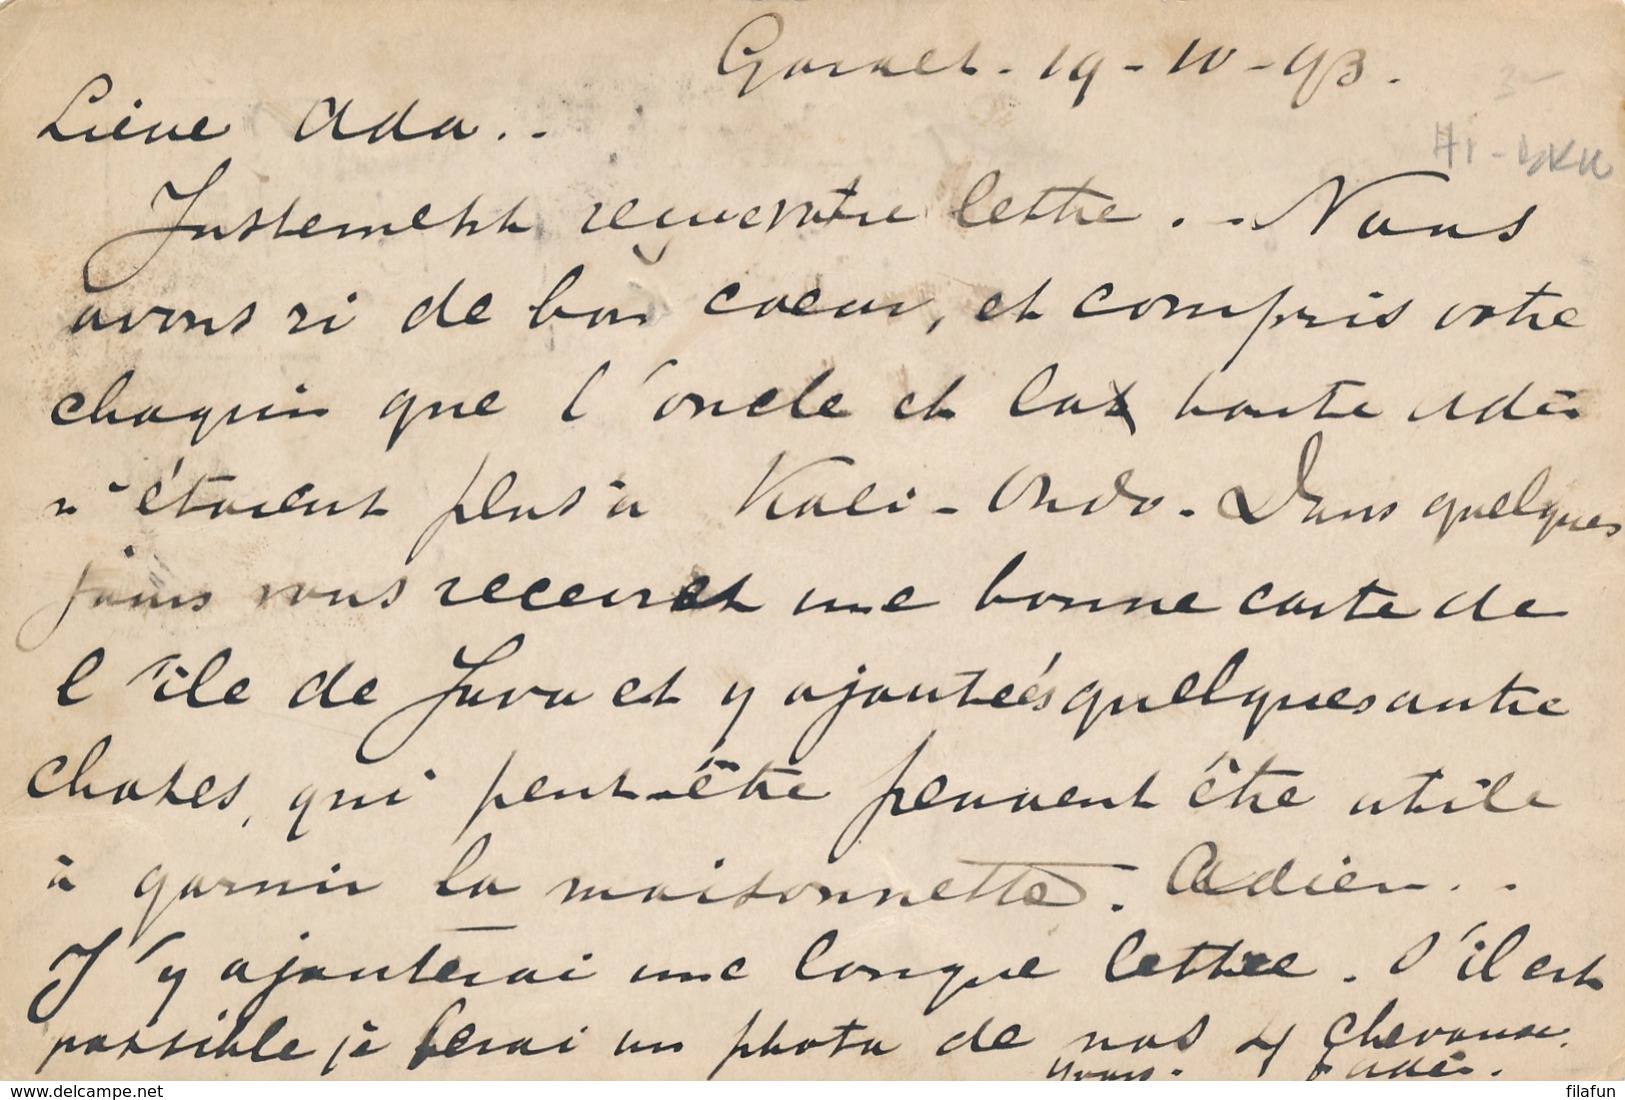 Garoet - 19 - 10 - 93.
Lieve Ada..
Justement reçu votre lettre. - Nous
avons ri de bon coeur, et compris votre
chagrin que l'oncle et la tante Adèr
n'étaient plus à Kali-Ondo. Dans quelques
jours vous recevret une bonne carte de
l'île de Java et y ajouteés quelques autre
choses, qui peut-être peuvent être utile
à garnir la maisonnette. Adieu..
J'y ajouterai une longue lettre. S'il est
possible je ferai un photo de nos 4 chevause.
filafun